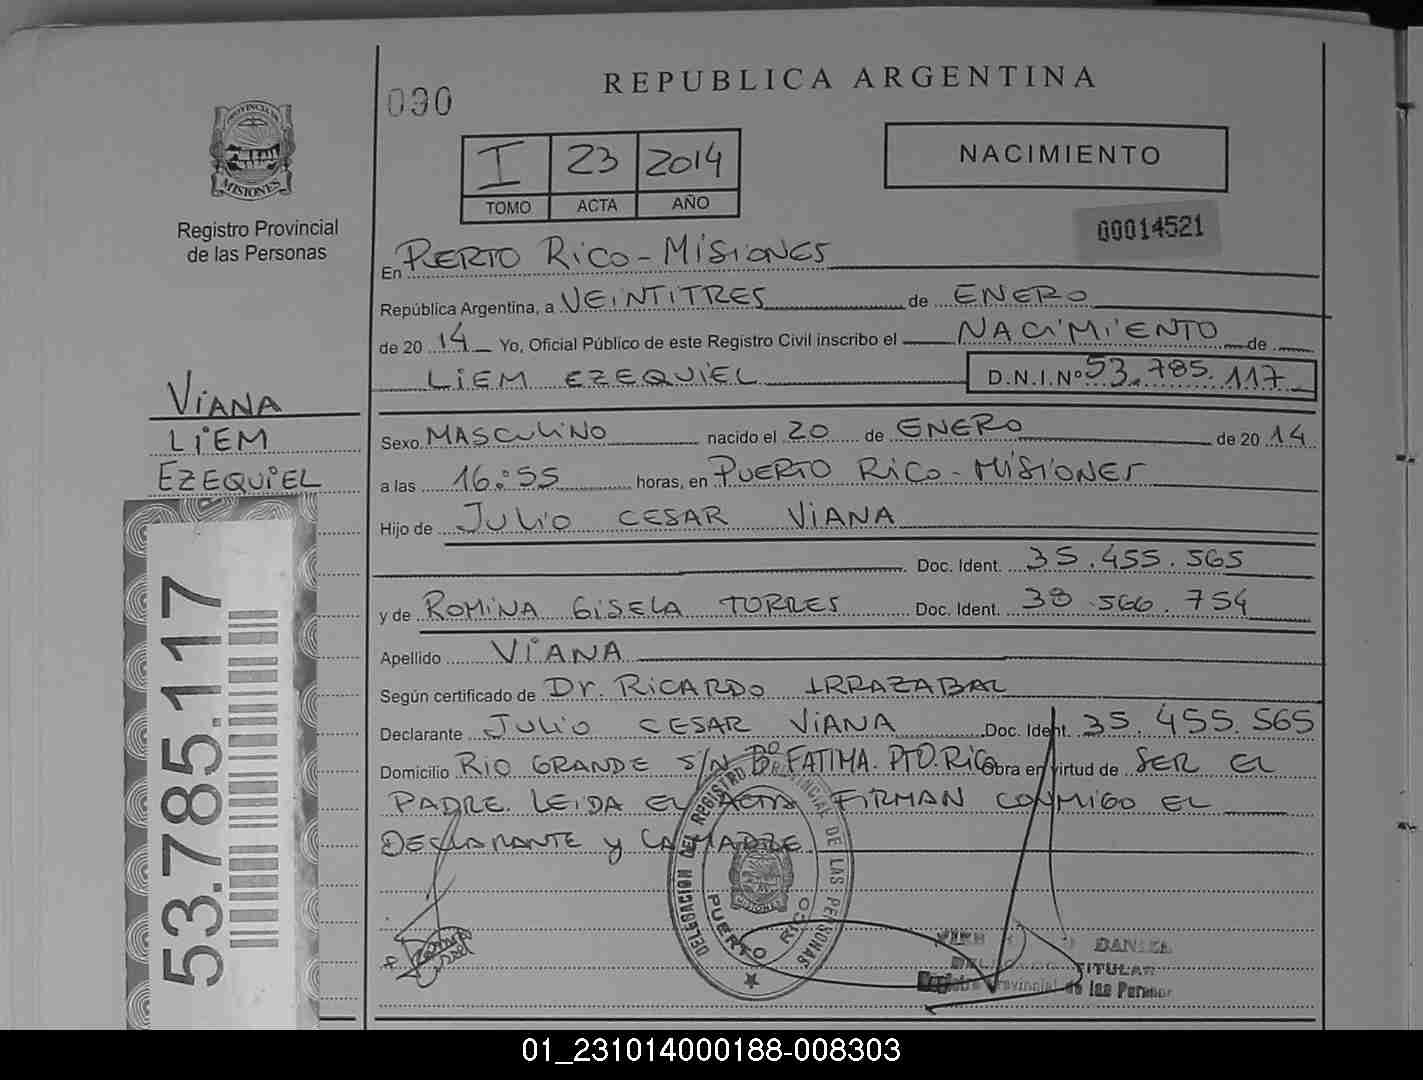 REPUBLICA ARGENTINA
030
PROVINCIA DE
MISIONES
Registro Provincial
de las Personas
I 23 2014
TOMO ACTA AÑO
NACIMIENTO
00014521
En PUERTO RICO - MISIONES
República Argentina, a VEINTITRES de ENERO
de 20 14 Yo, Oficial Público de este Registro Civil inscribo el NACIMIENTO de
LIEM EZEQUIEL D.N.I.Nº 53.785.117
VIANA
LIEM
EZEQUIEL
Sexo MASCULINO nacido el 20 de ENERO de 20 14
a las 16:55 horas, en PUERTO RICO - MISIONES
Hijo de JULIO CESAR VIANA
Doc. Ident. 35.455.565
y de ROMINA GISELA TORRES Doc. Ident. 38.566.754
Apellido VIANA
Según certificado de Dr. RICARDO IRRAZABAL
Declarante JULIO CESAR VIANA Doc. Ident. 35.455.565
Domicilio RIO GRANDE S/N Bº FATIMA. PTO. RICO Obra en virtud de SER EL
PADRE. LEIDA EL ACTA FIRMAN CONMIGO EL
DECLARANTE y LA MADRE
53.785.117
DELEGACION DEL REGISTRO PROVINCIAL DE LAS PERSONAS
PUERTO RICO
MISIONES
TITULAR
Registro Provincial de las Personas
01_231014000188-008303